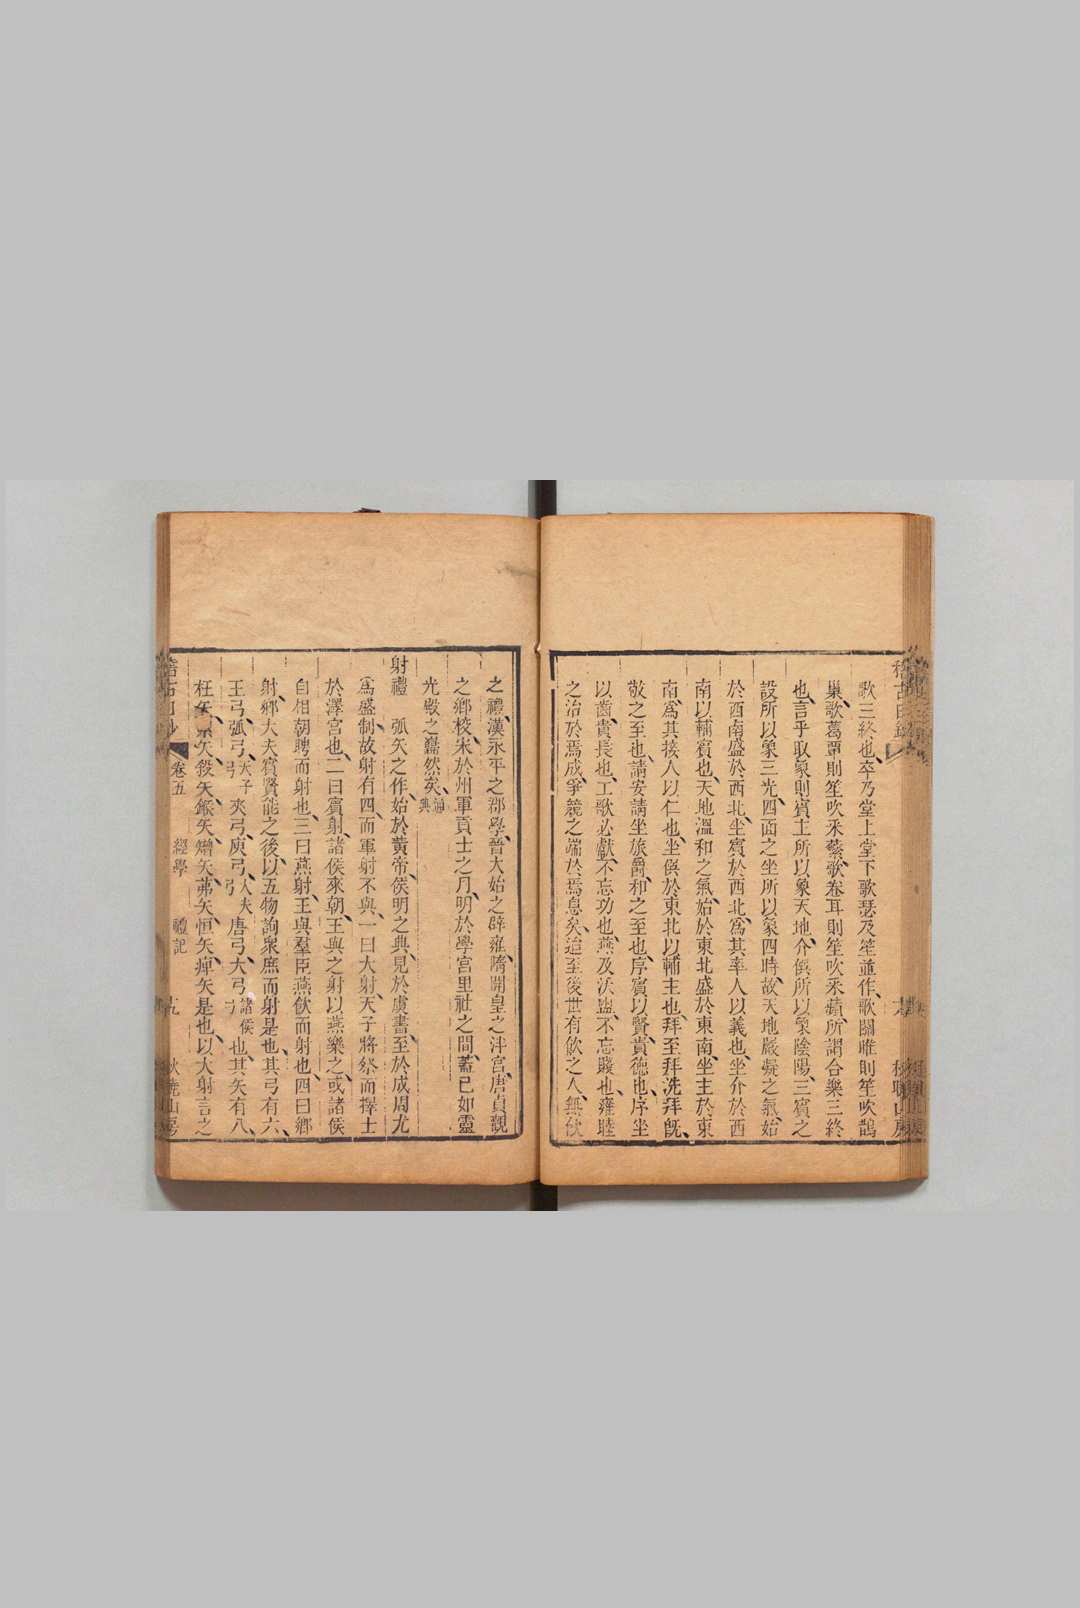 歌三終也卒乃堂上堂下歌瑟及笙並作歌關雎則笙吹鵲
巢歌葛覃則笙吹采蘩歌卷耳則笙吹采蘋所謂合樂三終
也言乎取象則賓主所以象天地介僎所以象陰陽三賓之
設所以象三光四面之坐所以象四時故天地嚴凝之氣始
於西南盛於西北坐賓於西北為其率人以義也坐介於西
南以輔賓也天地溫和之氣始於東北盛於東南坐主於東
南為其接人以仁也坐僎於東北以輔主也拜至拜洗拜既
敬之至也請安請坐旅爵和之至也序賓以賢貴德也序坐
以齒貴長也工歌必獻不忘功也燕及沃盥不忘賤也雍睦
之治於焉成爭競之端於焉息矣迨至後世有飲之人無飲
之禮漢永平之郡學晉大始之辟雍隋開皇之泮宮唐貞觀
之鄉校宋於州軍貢士之月明於學宮里社之間蓋已如靈
光殿之巋然矣 通典
射禮 弧矢之作始於黃帝侯明之典見於虞書至於成周尤
為盛制故射有四而軍射不與一曰大射天子將祭而擇士
於澤宮也二曰賓射諸侯來朝王與之射以燕樂之或諸侯
自相朝聘而射也三曰燕射王與羣臣燕飲而射也四曰鄉
射鄉大夫賓賢能之後以五物詢衆庶而射是也其弓有六
王弓弧弓天子弓夾弓庾弓大夫弓唐弓大弓諸侯弓也其矢有八
枉矢絜矢殺矢鍭矢矰矢茀矢恒矢痺矢是也以大射言之
卷五 經學 禮記 九